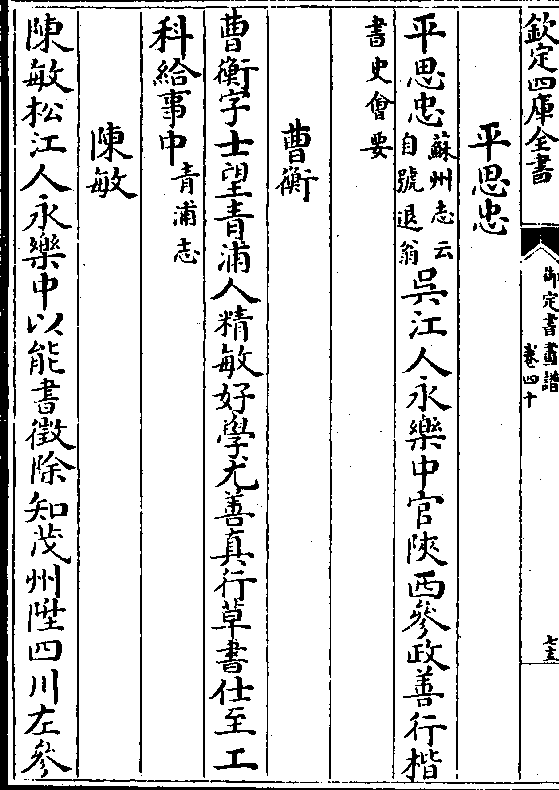 欽定四庫全書
御定書畫譜
卷四十
七十五
平思忠
平思忠蘇州志云自號退翁吳江人永樂中官陝西參政善行楷
書史會要
曹衡
曹衡字士望青浦人精敏好學尤善真行草書仕至工
科給事中青浦志
陳敏
陳敏松江人永樂中以能書徵除知茂州陞四川左參